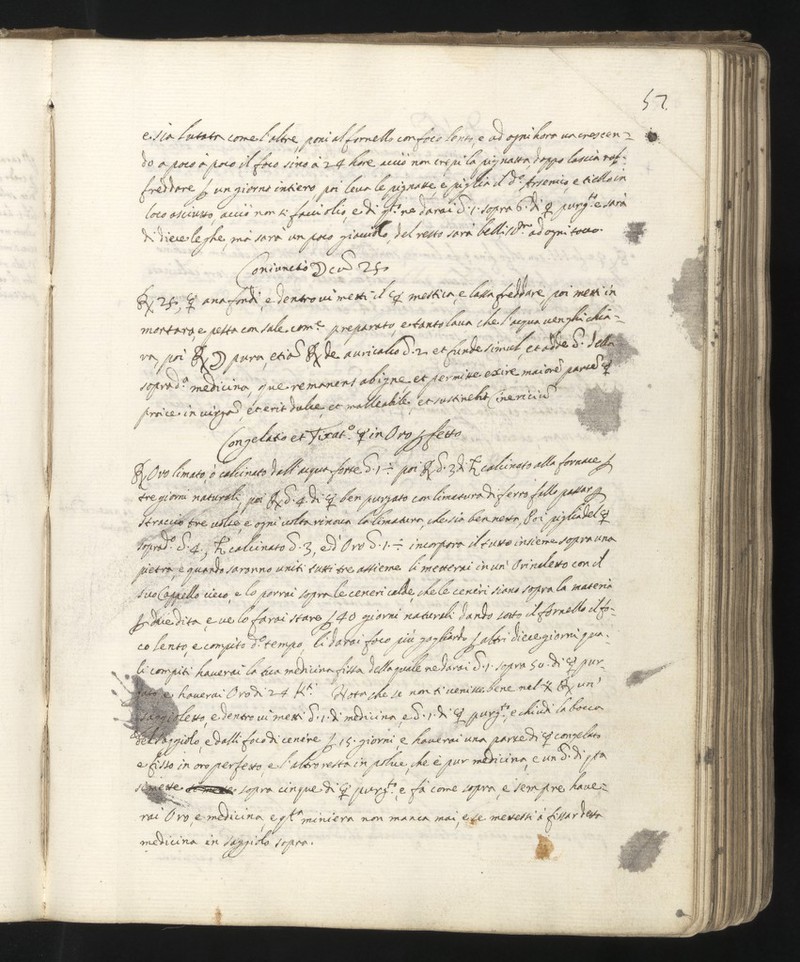 57.
e sia lutata come l'altre, poni al fornello con foco lento, e ad ogni hora va crescen=
do a poco à poco il foco sino à 24 hore acciò non crepi la pignatta doppo lascia raf=
freddare ꝑ un giorno intiero poi leva le pignatte, e piglia il d.º Arsenico, e tienlo in
loco asciutto acciò non si facci olio, e di q.to ne darai ℥.1. sopra 6. di ☿ purg.to e sarà
di diece leghe, mà sarà un poco, del resto sarà belliss.mo ad ogni tocco.
Coniunctio ☽ cũ
℞, ☿ ana fondi, e dentro vi metti il ☿ mestica, e lassa freddare, poi metti in
mortaro, e pesta con sale com.e preparato, e tanto lava che l'acqua venghi chia=
ra, poi ℞ ☽ pura, ℞ de auricalco ℥.2. et funde simul et adde ℥. della
soprad.a medicina, que remanens ab igne, et permitte exire ☿
proice in virga, et erit dulce, et malleabile, et sustinebit Cinericiũ
Congelatio et Fixat.º ☿ in Oro ꝑfetto
℞ Oro limato, ò calcinato dall'acqua forte ℥.1.÷ poi ℞ ℥.3 di ♄ calcinato alla fornace ꝑ
tre giorni naturali, poi ℞ ℥.4. di ☿ ben purgato con limatura di ferro fallo passar ꝑ
straccio tre volte, e ogni volta rinova la limatura, che sia ben netta, Poi piglia del ☿
soprad.º ℥.4., ♄ calcinato ℥.3, ed Oro ℥.1.÷ incorpora il tutto insieme sopra una
pietra, e quando saranno uniti tutti tre assieme li metterai in un' Orinaletto con il
suo Cappello cieco, e lo porrai sopra le ceneri calde, che le ceneri siano sopra la materia
ꝑ due dita, e ve lo farai stare ꝑ 40 giorni naturali dando sotto il fornello il fo=
co lento, e compito d.º tempo, li darai foco più gagliardo ꝑ altri diece giorni qua=
li compiti haverai la tua medicina fissa della quale ne darai ℥.1. sopra 50. di ☿ pur=
gato e haverai Oro di 24 K.ti. Nota, che se non ti venisse bene nel ℞ un'
saggioletto, e dentro vi metti ℥.1. di medicina, e ℥.1. di ☿ purg.to, e chiudi la bocca
del saggiolo, e dalli foco di cenere ꝑ 15. giorni e haverai una parte di ☿ congelato
e fisso in oro perfetto, e l'altro resta in polve, che è pur medicina, e un ℥. di q.ta
si mette sopra cinque di ☿ purg.to, e fà come sopra, e sempre have=
rai Oro, e medicina, e q.ta miniera non manca mai, e se metesti à fissar detta
medicina in saggiolo sopra.